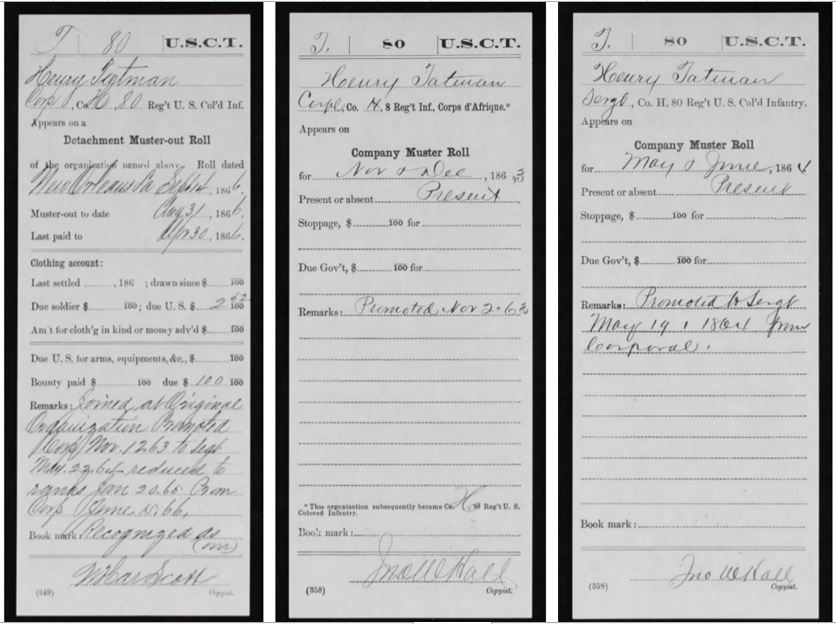 T | 80 | U.S.C.T.
Henry Tatman
Corp, Co. H, 80 Reg't U. S. Col'd Inf.
Appears on a
Detachment Muster-out Roll
of the organization named above. Roll dated
New Orleans La Sept 4, 1866.
Muster-out to date Aug 31, 1866.
Last paid to Apr 30, 1866.
Clothing account:
Last settled, 186 ; drawn since $ 100
Due soldier $ 100; due U. S. $ 2 52 100
Am't for cloth'g in kind or money adv'd $ 100
Due U. S. for arms, equipments, &c., $ 100
Bounty paid $ 100 due $ 100 100
Remarks: Joined at Original
Organization Promoted
Corp Nov. 1263 to Sergt
May. 22. 64 reduced to
ranks Jan 20. 65 Prom
Corp June 66.
Book mark: Recognized as
(over)
Scott
(349) Copyist.
T. | 80 | U.S.C.T.
Henry Tatman
Corpl, Co. H, 8 Reg't Inf., Corps d'Afrique.*
Appears on
Company Muster Roll
for Nov & Dec, 1863
Present or absent Present
Stoppage, $ 100 for
Due Gov't, $ 100 for
Remarks: Promoted Nov 2. 63
* This organization subsequently became Co. H, 80 Reg't U. S.
Colored Infantry.
Book mark:
Jno W Hall
(358) Copyist.
T. | 80 | U.S.C.T.
Henry Tatman
Sergt, Co. H, 80 Reg't U. S. Col'd Infantry.
Appears on
Company Muster Roll
for May & June, 1864
Present or absent Present
Stoppage, $ 100 for
Due Gov't, $ 100 for
Remarks: Promoted to Sergt
May 19, 1864 from
Corporal.
Book mark:
Jno W Hall
(358) Copyist.